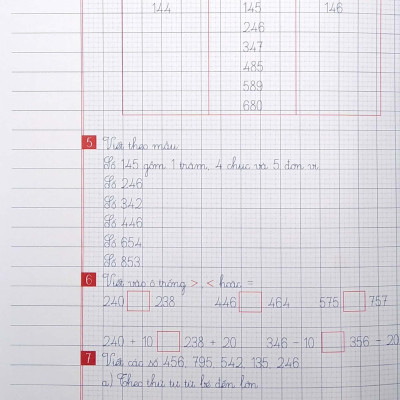 144 145 146
246
347
485
589
680
5 Viết theo mẫu
Số 145 gồm 1 trăm, 4 chục và 5 đơn vị
Số 246
Số 342
Số 446
Số 654
Số 853
6 Viết vào ô trống >, < hoặc =
240 238 446 464 575 757
240 + 10 238 + 20 346 - 10 356 - 20
7 Viết các số 456, 795, 542, 135, 246
a) Theo thứ tự từ bé đến lớn